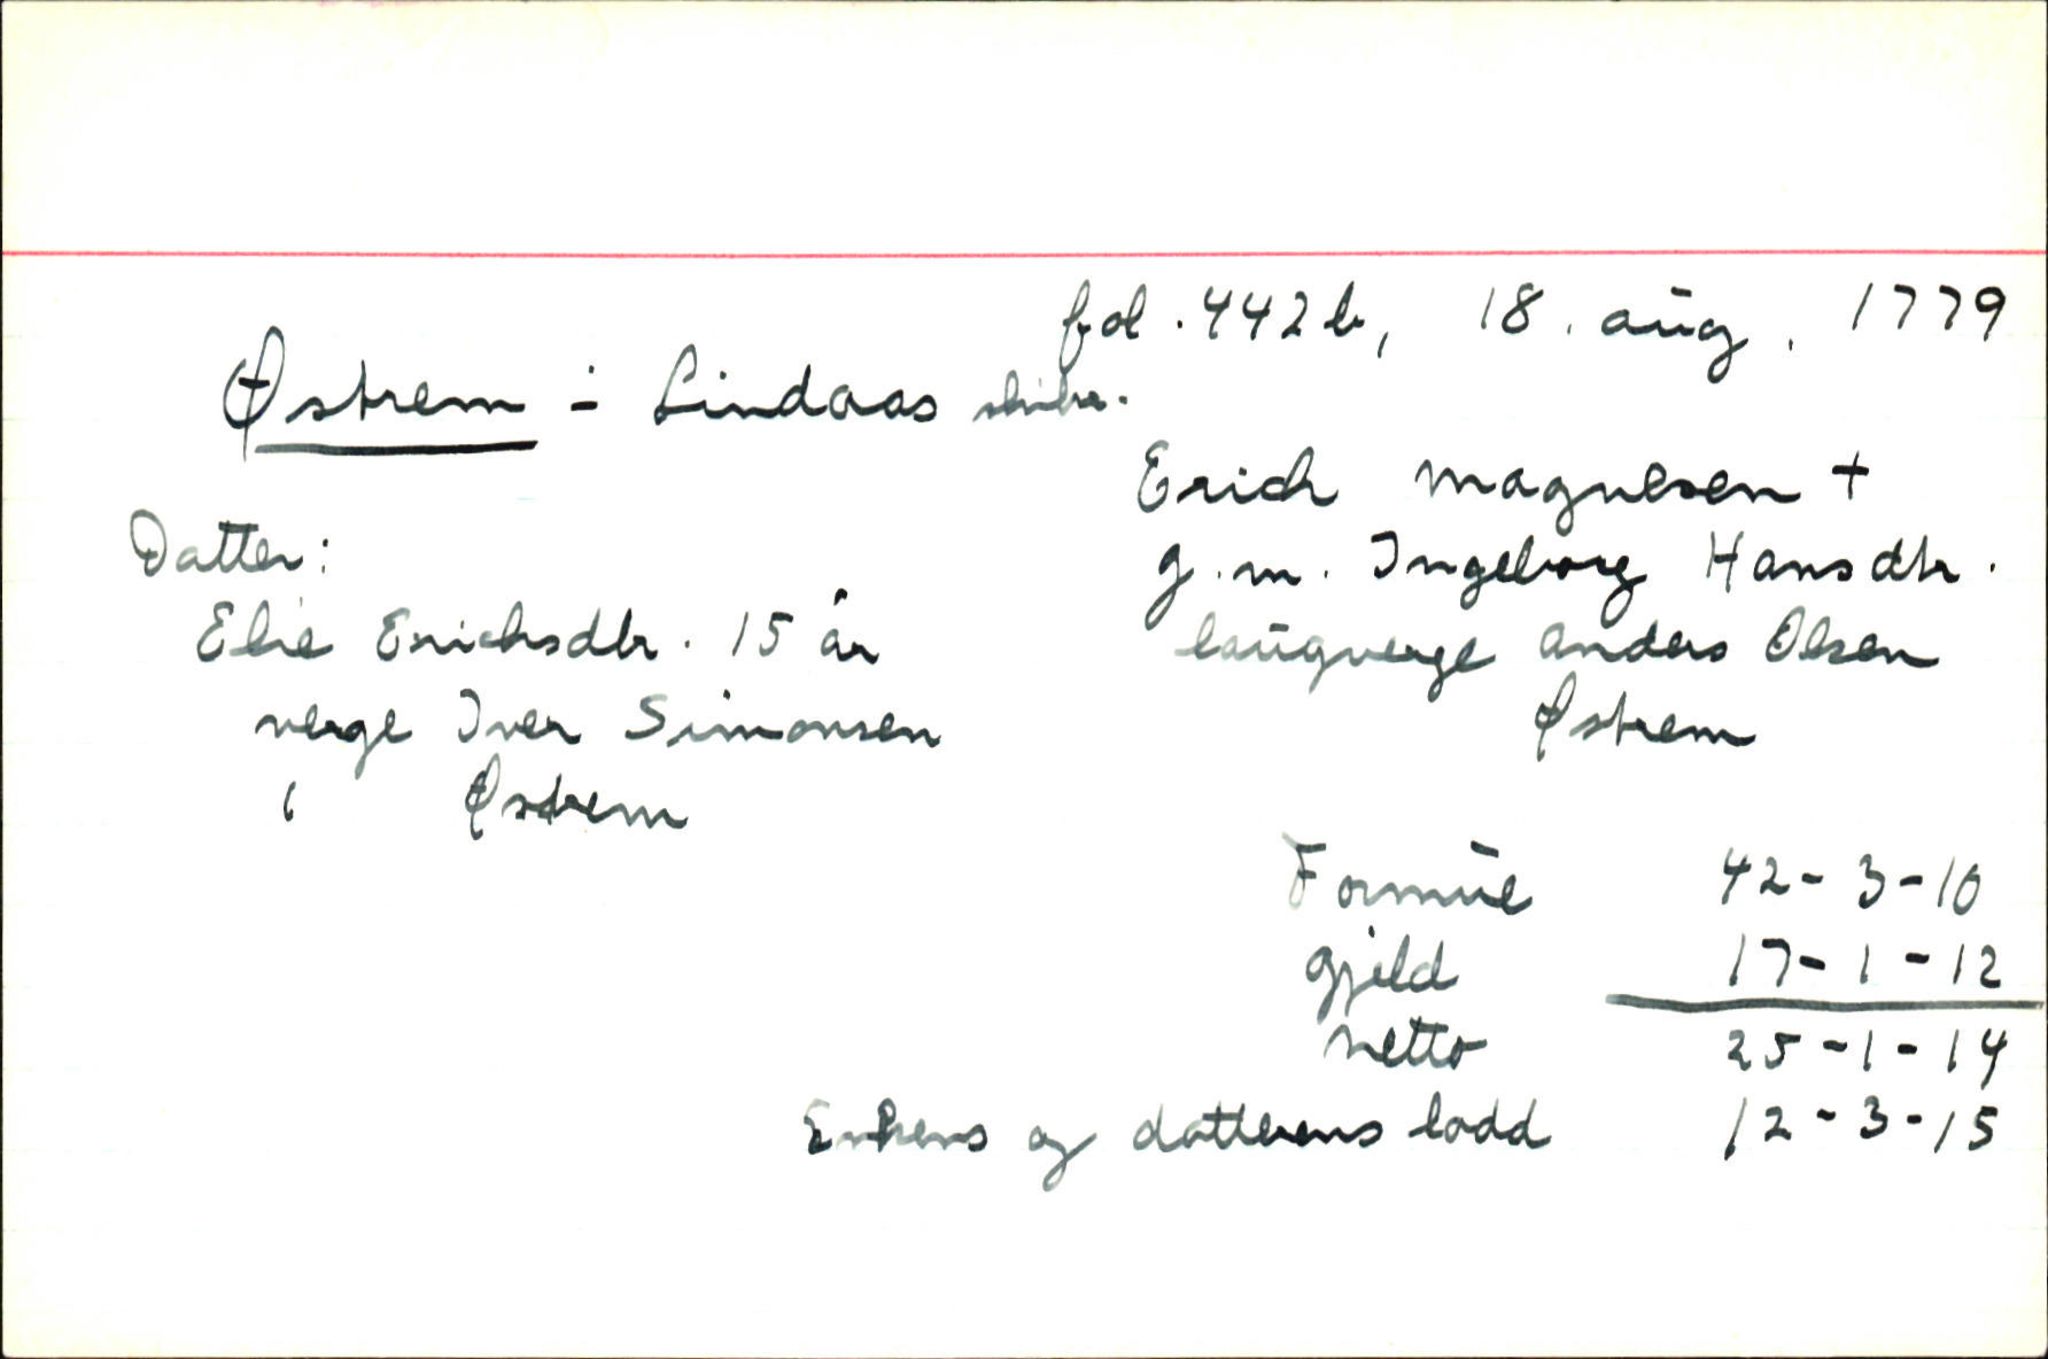 fol. 442 b, 18. aug. 1779
Østrem i Lindaas skibr.
Erich Magnesen +
g.m. Ingeborg Hansdtr.
laugverge Anders Olsen
Østrem
Datter:
Elie Erichsdtr. 15 år
verge Iver Simonsen
Østrem
Formue 42-3-10
gjeld 17-1-12
netto 25-1-14
Enkens og datterens lodd 12-3-15